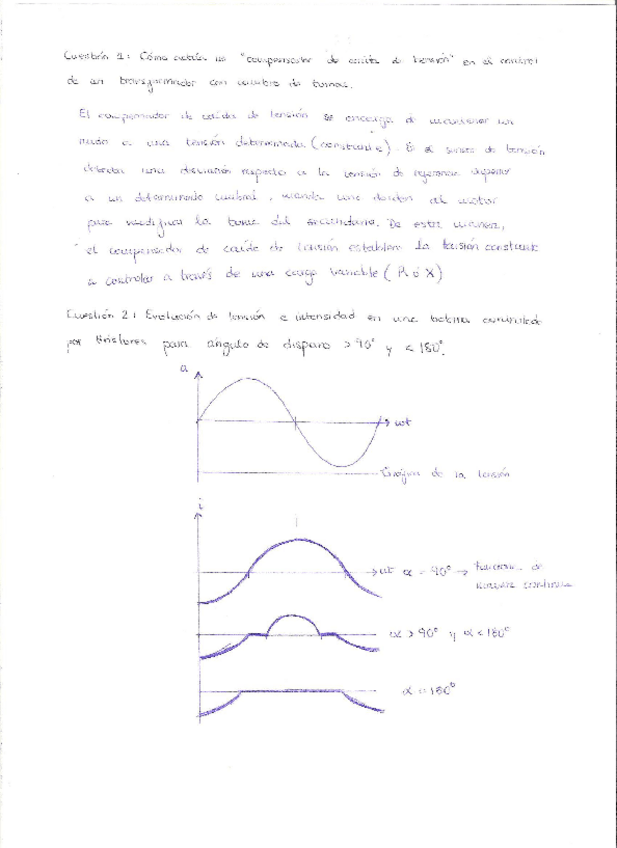 Cuestión 1: Cómo actúa un "compensador de caída de tensión" en el control
de un transformador con cambio de tomas.
El compensador de caída de tensión se encarga de mantener un
nudo a una tensión determinada (constante). Si el sensor de tensión
detecta una desviación respecto a la tensión de referencia superior
a un determinado umbral, manda una orden al motor
para modificar la toma del secundario. De esta manera,
el compensador de caída de tensión establece la tensión constante
a controlar a través de una carga variable (R ó X)
Cuestión 2: Evolución de tensión e intensidad en una bobina controlada
por tiristores para ángulo de disparo > 90° y < 180°.
a
ωt
Gráfica de la tensión
i
ωt α = 90° → funciona de
manera continua
α > 90° y α < 180°
α = 180°